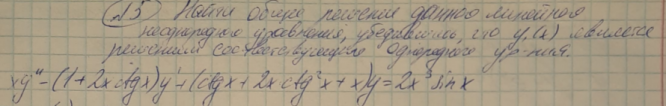 №5 Найти общее решение данной линейной
неоднородного уравнения, убедившись, что y,(x) является
решением соответствующего однородного ур-ния.
xy" - (1+2xctgx)y' + (ctgx + 2xctg²x + x)y = 2x³sinx